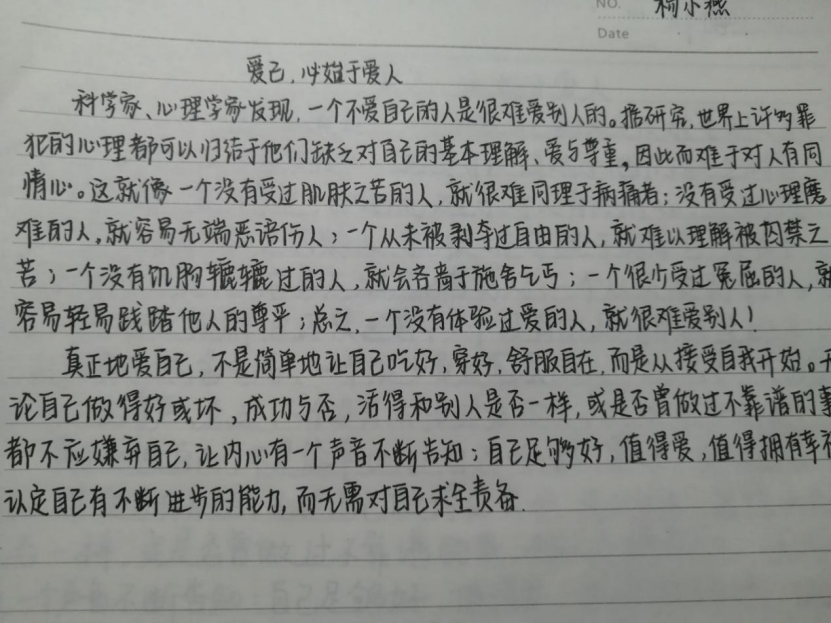 NO.
柯小燕
Date
爱己,必始于爱人
科学家、心理学家发现,一个不爱自己的人是很难爱别人的。据研究,世界上许多罪
犯的心理都可以归结于他们缺乏对自己的基本理解、爱与尊重,因此而难于对人有同
情心。这就像一个没有受过肌肤之苦的人,就很难同理于病痛者;没有受过心理磨
难的人,就容易无端恶语伤人;一个从未被剥夺过自由的人,就难以理解被囚禁之
苦;一个没有饥肠辘辘过的人,就会吝啬于施舍乞丐;一个很少受过冤屈的人,就
容易轻易践踏他人的尊严;总之,一个没有体验过爱的人,就很难爱别人!
真正地爱自己,不是简单地让自己吃好,穿好,舒服自在,而是从接受自我开始。
论自己做得好或坏,成功与否,活得和别人是否一样,或是否曾做过不靠谱的事
都不应嫌弃自己,让内心有一个声音不断告知:自己足够好,值得爱,值得拥有幸
认定自己有不断进步的能力,而无需对自己求全责备.